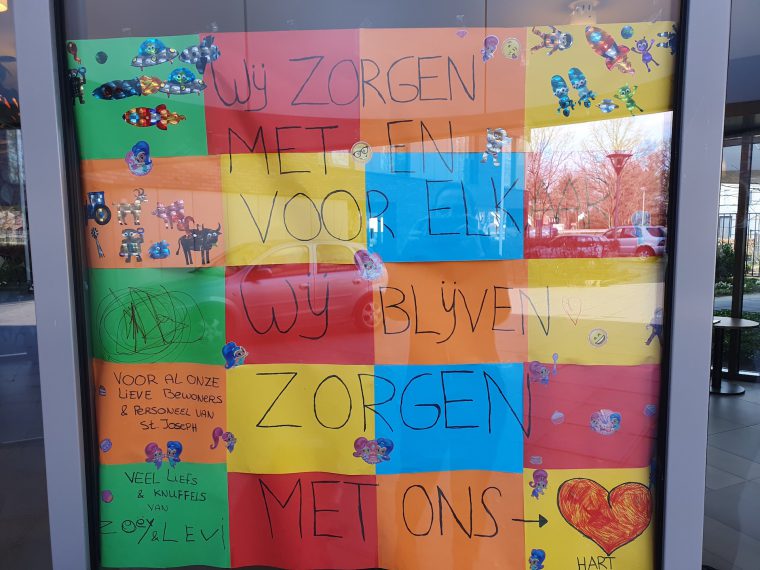 WIJ ZORGEN
MET EN
VOOR ELKAAR
WIJ BLIJVEN
ZORGEN
MET ONS →
HART
VOOR AL ONZE
LIEVE BEWONERS
& PERSONEEL VAN
St. JOSEPH
VEEL LIEFS
& KNUFFELS
VAN
ZOEY
& LEVI